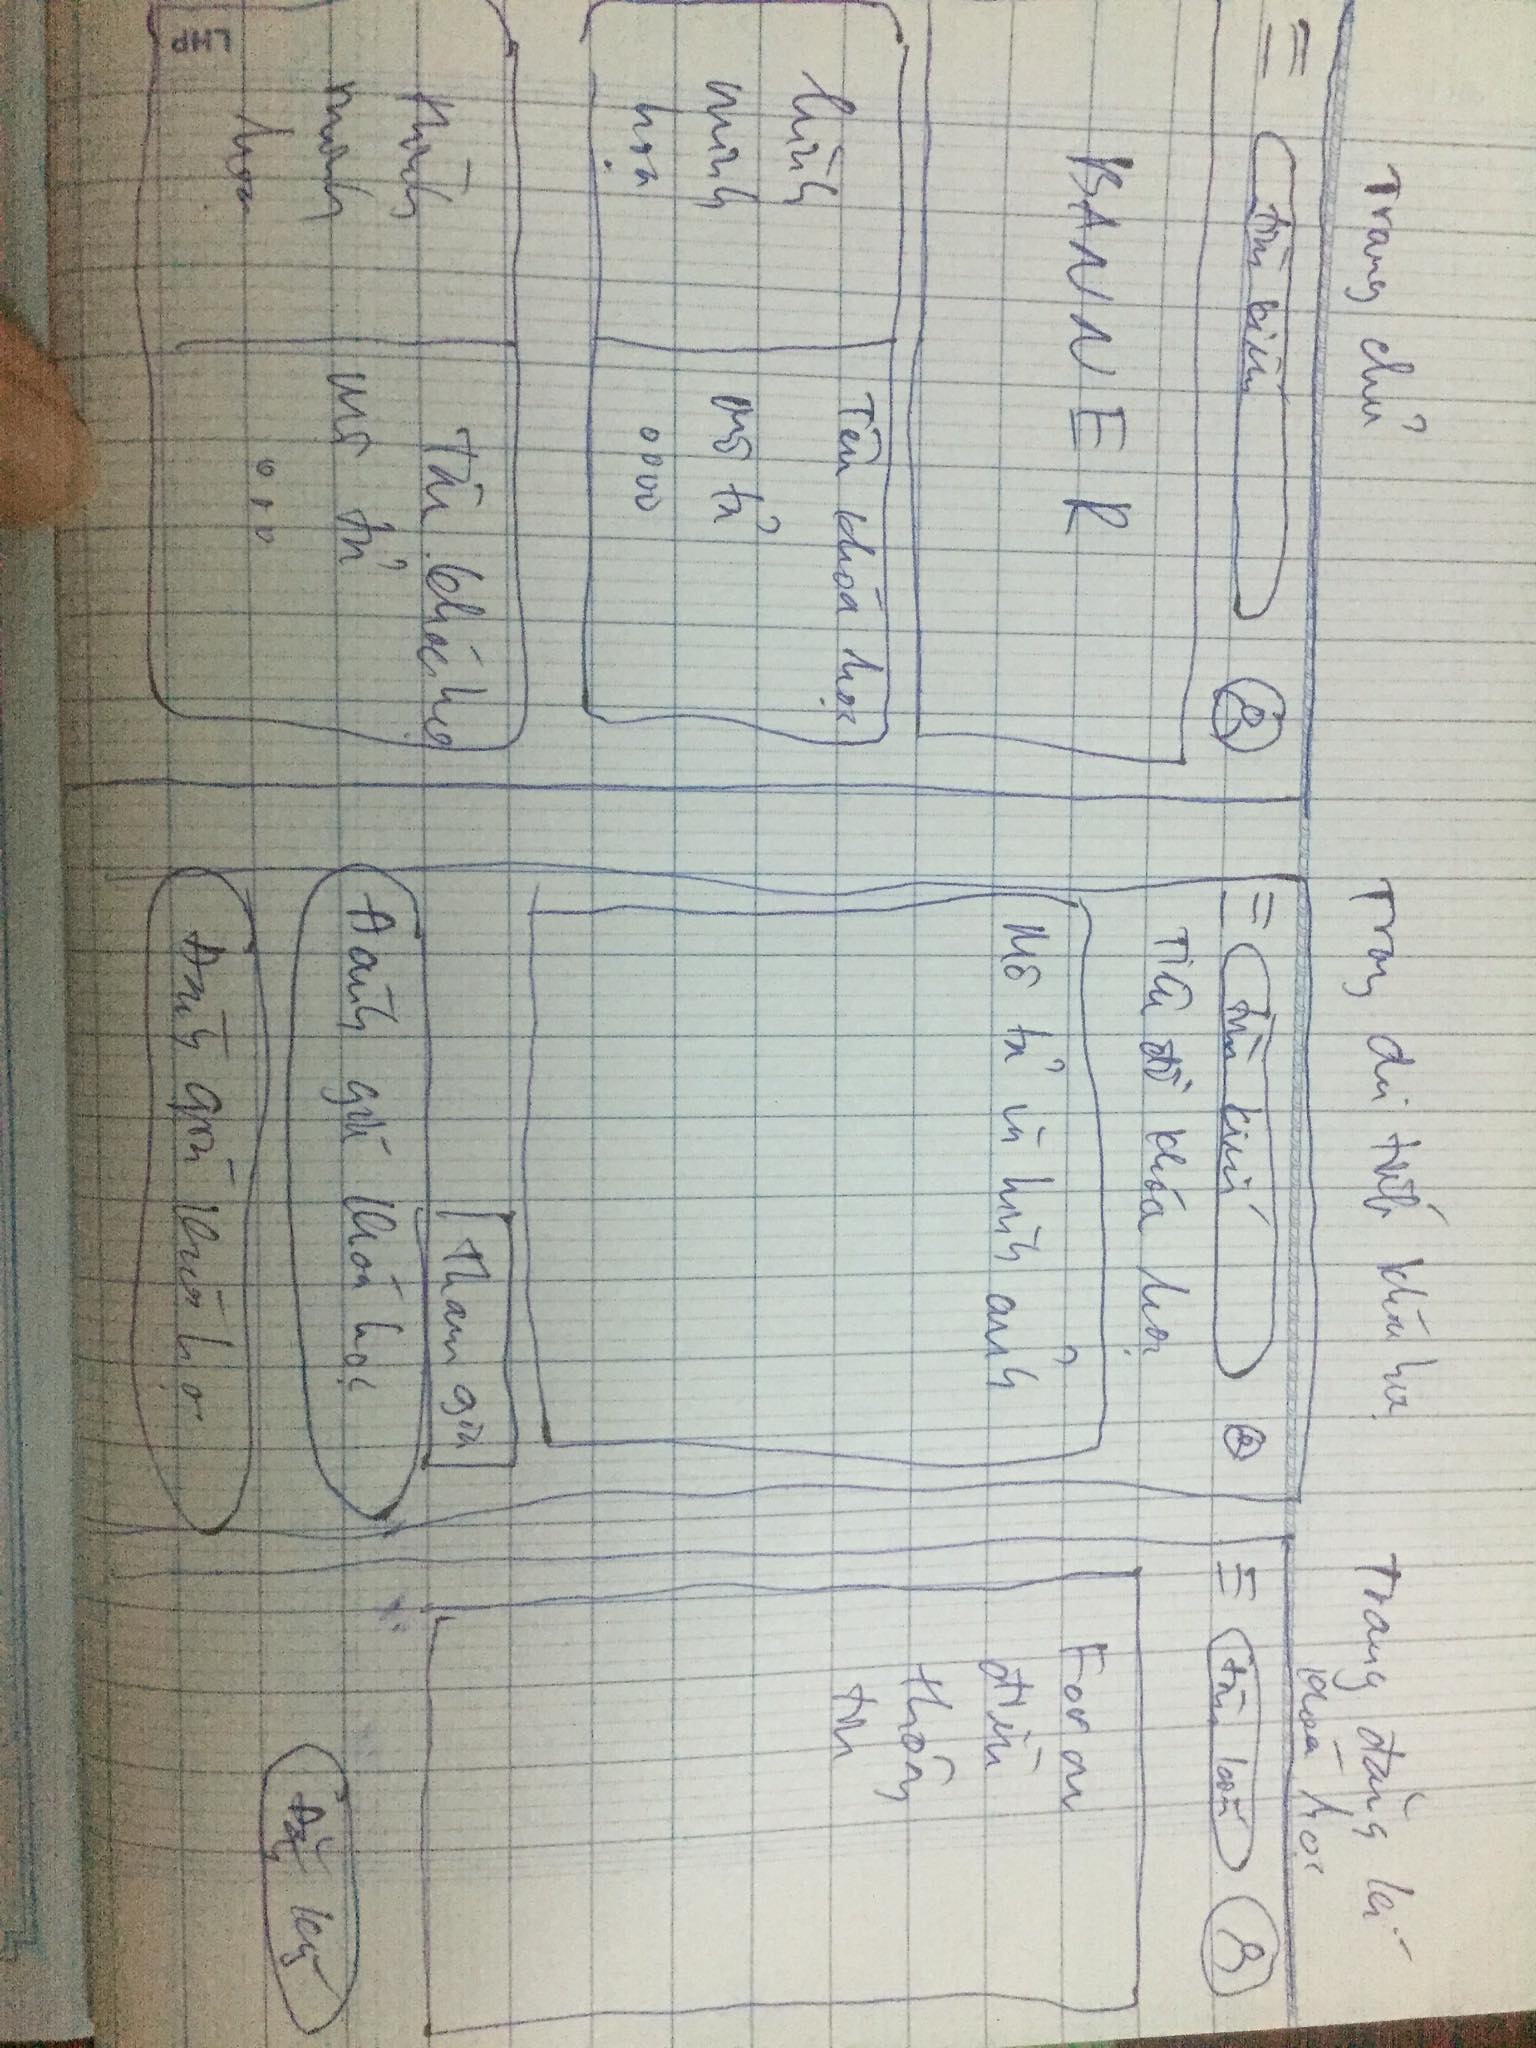 Trang chủ
tìm kiếm
BANNER
hình
minh
họa
Tên khóa học
mô tả
hình
minh
họa
Tên khóa họ
mô tả
LHP
Trang chi tiết khóa học
tìm kiếm
Tiêu đề khóa học
Mô tả và hình ảnh
Tham gia
Đánh giá khóa học
Đánh giá khóa họ
Trang đăng kí
khóa học
tìm kiếm
Form
điền
thông
tin
Đăng ký